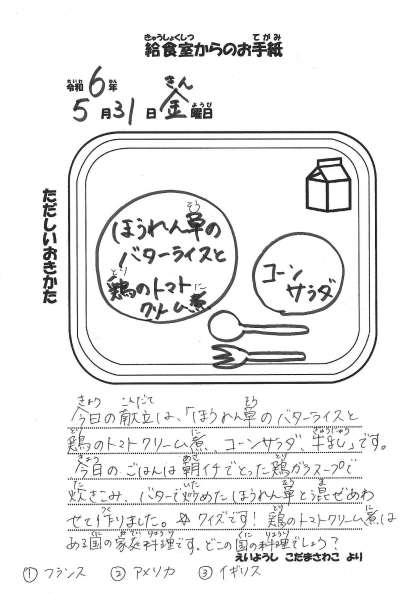 給食室からのお手紙
令和6年
5月31日 金曜日
ただしいおきかた
ほうれん草の
バターライスと
鶏のトマト
クリーム煮
コーン
サラダ
今日の献立は、「ほうれん草のバターライスと
鶏のトマトクリーム煮、コーンサラダ、牛乳」です。
今日のごはんは朝イチでとった鶏ガラスープで
炊きこみ、バターで炒めたほうれん草と混ぜあわ
せて作りました。☆クイズです！鶏のトマトクリーム煮は
ある国の家庭料理です。どこの国の料理でしょう？
えいようし こだまさわこ より
① フランス ② アメリカ ③ イギリス